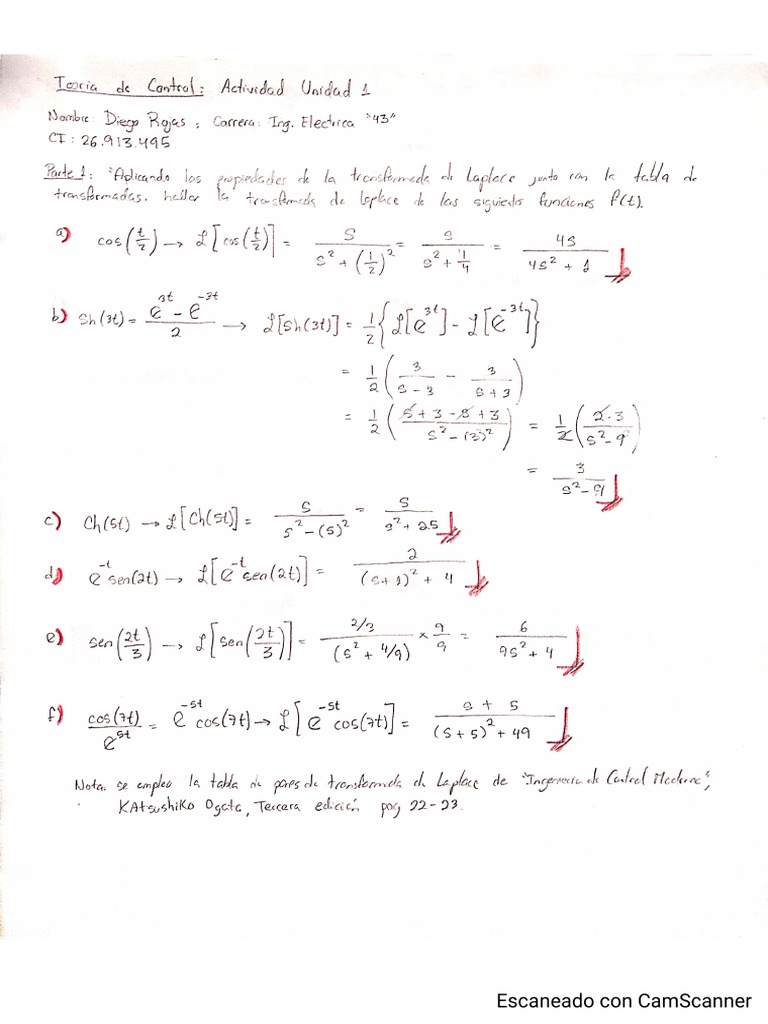 Teoría de Control: Actividad Unidad 1
Nombre: Diego Rojas ; Carrera: Ing. Electrica "43"
CI: 26.913.495
Parte 1: "Aplicando las propiedades de la transformada de Laplace junto con la tabla de
transformadas, hallar la transformada de Laplace de las siguientes funciones f(t).
a) cos(t/2) → ℒ[cos(t/2)] = s/(s² + (1/2)²) = s/(s² + 1/4) = 4s/(4s² + 1)
b) Sh(3t) = (e^{3t} - e^{-3t})/2 → ℒ[Sh(3t)] = 1/2 {ℒ[e^{3t}] - ℒ[e^{-3t}]}
= 1/2 (3/(s - 3) - 3/(s + 3))
= 1/2 ((s + 3 - s + 3)/(s² - (3)²)) = 1/2 (2·3/(s² - 9))
= 3/(s² - 9)
c) Ch(5t) → ℒ[Ch(5t)] = s/(s² - (5)²) = s/(s² + 25)
d) e^{-t} sen(2t) → ℒ[e^{-t} sen(2t)] = 2/((s + 1)² + 4)
e) sen(2t/3) → ℒ[sen(2t/3)] = (2/3)/(s² + 4/9) × 9/9 = 6/(9s² + 4)
f) cos(7t)/e^{5t} = e^{-5t} cos(7t) → ℒ[e^{-5t} cos(7t)] = (s + 5)/((s + 5)² + 49)
Nota: se empleo la tabla de pares de transformada de Laplace de "Ingenieria de Control Moderna",
Katsushiko Ogata, Tercera edición pag 22-23.
Escaneado con CamScanner